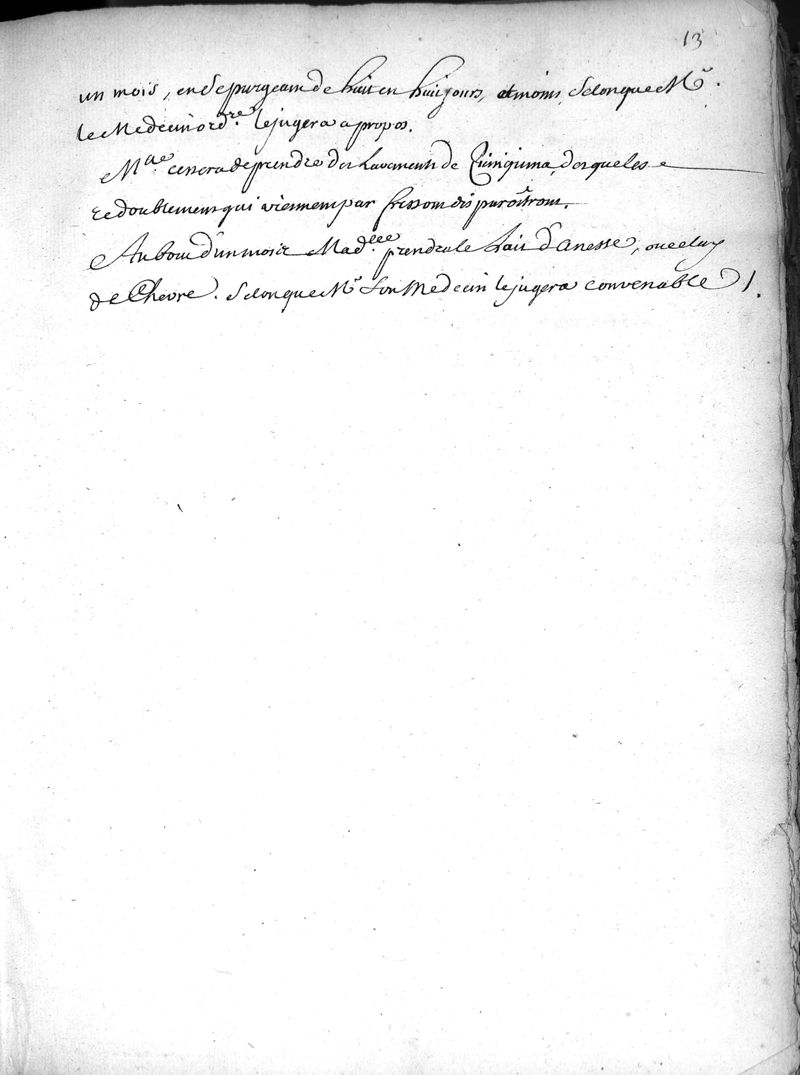 13
un mois, en se purgeant de huit en huit jours, et moins, selon que Mr.
le Medecin ordre. le jugera a propos.
Mae. cessera de prendre des Lavements de Quinquina, des que les
redoublemens qui viennent par frissons disparoitront.
Au bout d'un mois Madlle prendra le Lait d'anesse, ou celuy
de Chevre. selon que Mr. son Medecin le jugera convenable